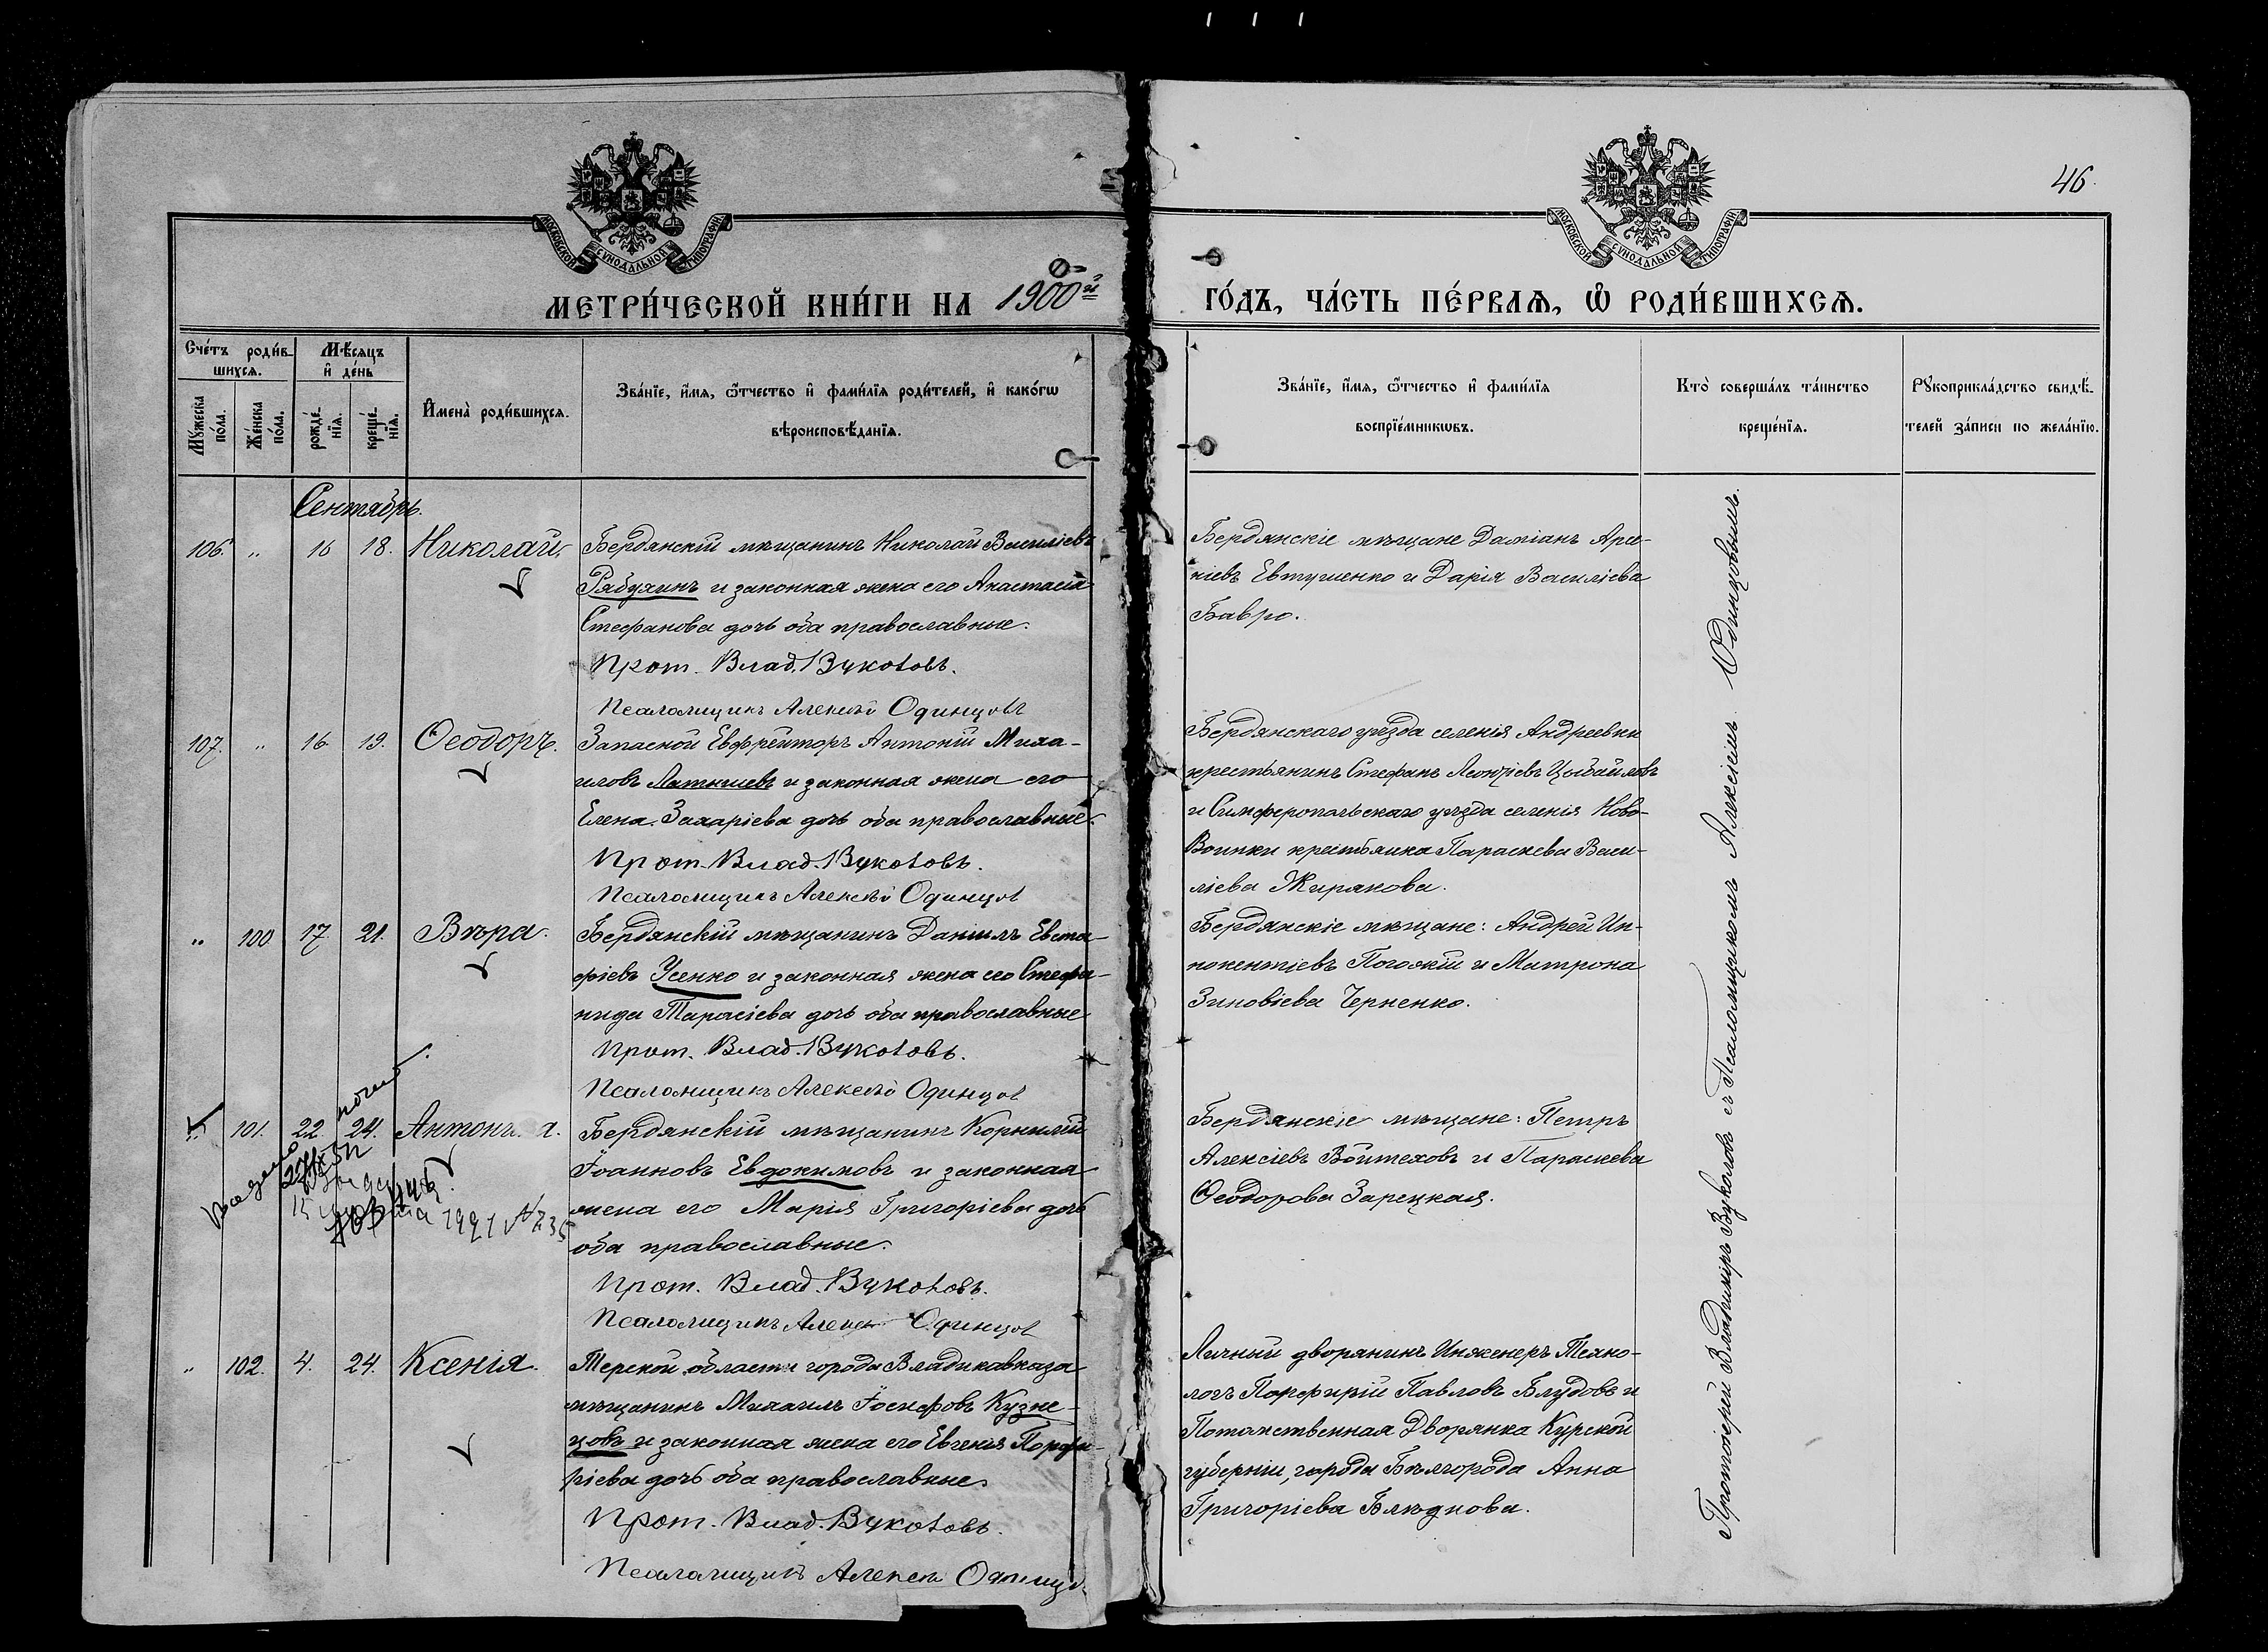 46.
МОСКОВСКОЙ СѴНОДАЛЬНОЙ ТИПОГРАФІИ
МОСКОВСКОЙ СѴНОДАЛЬНОЙ ТИПОГРАФІИ
МЕТРИ́ЧЕСКОЙ КНИ́ГИ НА 1900й
ГО́ДЪ, ЧА́СТЬ ПЕ́РВАЯ, Ѡ РОДИ́ВШИХСЯ.
Сче́тъ роди́в-
шихся.
Мѣ́сяцъ
и҆ де́нь
Мꙋ́жеска
по́ла.
Же́нска
по́ла.
рожде́-
нїя.
креще́-
нїя.
И҆мена̀ роди́вшихся.
Зва́нїе, и҆́мя, ѻ҆́тчество и҆ фами́лїя роди́телей, и҆ како́гѡ
вѣроисповѣ́данїя.
Зва́нїе, и҆́мя, ѻ҆́тчество и҆ фами́лїя
воспрїе́мникѡвъ.
Кто̀ соверша́лъ та́инство
креще́нїя.
Рꙋкоприкла́дство свидѣ́-
телей за́писи по жела́нїю.
Сентябрь.
106. " 16 18. Николай
Бердянскій мѣщанинъ Николай Василіевъ
Рябухинъ и законная жена его Анастасія
Стефанова дочь оба православные.
Прот. Влад. Вуколовъ.
Псаломщикъ Алексѣй Одинцовъ
Бердянскіе мѣщане Даміанъ Арсе-
ніевъ Евтушенко и Дарія Василіева
Бавро.
107. " 16. 19. Ѳеодоръ.
Запасной Ефрейторъ Антоній Миха-
иловъ Латышевъ и законная жена его
Елена Захаріева дочь оба православные.
Прот. Влад. Вуколовъ.
Псаломщикъ Алексѣй Одинцов
Бердянскаго уѣзда селенія Андреевки
крестьянинъ Стефанъ Леонтіевъ
и Симферопольскаго уѣзда селенія Ново-
Воинки крестьянка Параскева Васи-
ліева Жирякова.
" 100 17. 21. Вѣра.
Бердянскій мѣщанинъ Даніилъ Евста-
фіевъ Усенко и законная жена его Стефа-
нида Тарасіева дочь оба православные
Прот. Влад. Вуколовъ.
Псаломщикъ Алексѣй Одинцов
Бердянскіе мѣщане: Андрей Ин-
нокентіевъ и Матрона
Зиновіева Черненко.
" 101. 22. 24. Антонина.
Бердянскій мѣщанинъ Корнилій
Іоанновъ Евдокимовъ и законная
жена его Марія Григоріева дочь
оба православные.
Прот. Влад. Вуколовъ.
Псаломщикъ Алексѣй Одинцов
Бердянскіе мѣщане: Петръ
Алексіевъ Войтеховъ и Параскева
Ѳеодорова Зарецкая.
" 102. 4. 24. Ксенія.
Терской области города Владикавказа
мѣщанинъ Михаилъ Іосифовъ Кузне-
цовъ и законная жена его Евгенія Порфи-
ріева дочь оба православные.
Прот. Влад. Вуколовъ.
Псаломщикъ Алексѣй Одинцо
Личный дворянинъ Инженеръ Техно-
логъ Порфирій Павловъ Блудовъ и
Потомственная Дворянка Курской
губерніи, города Бѣлгорода Анна
Григоріева
Протоіерей Владиміръ Вуколовъ съ Псаломщикомъ Алексіемъ Одинцовымъ.